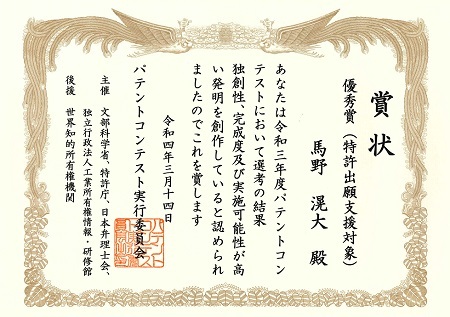 賞状
優秀賞（特許出願支援対象）
馬野 滉大 殿
あなたは令和三年度パテントコン
テストにおいて選考の結果
独創性、完成度及び実施可能性が高
い発明を創作していると認められ
ましたのでこれを賞します
令和四年三月十四日
パテントコンテスト実行委員会
主催 文部科学省、特許庁、日本弁理士会、
独立行政法人工業所有権情報・研修館
後援 世界知的所有権機関